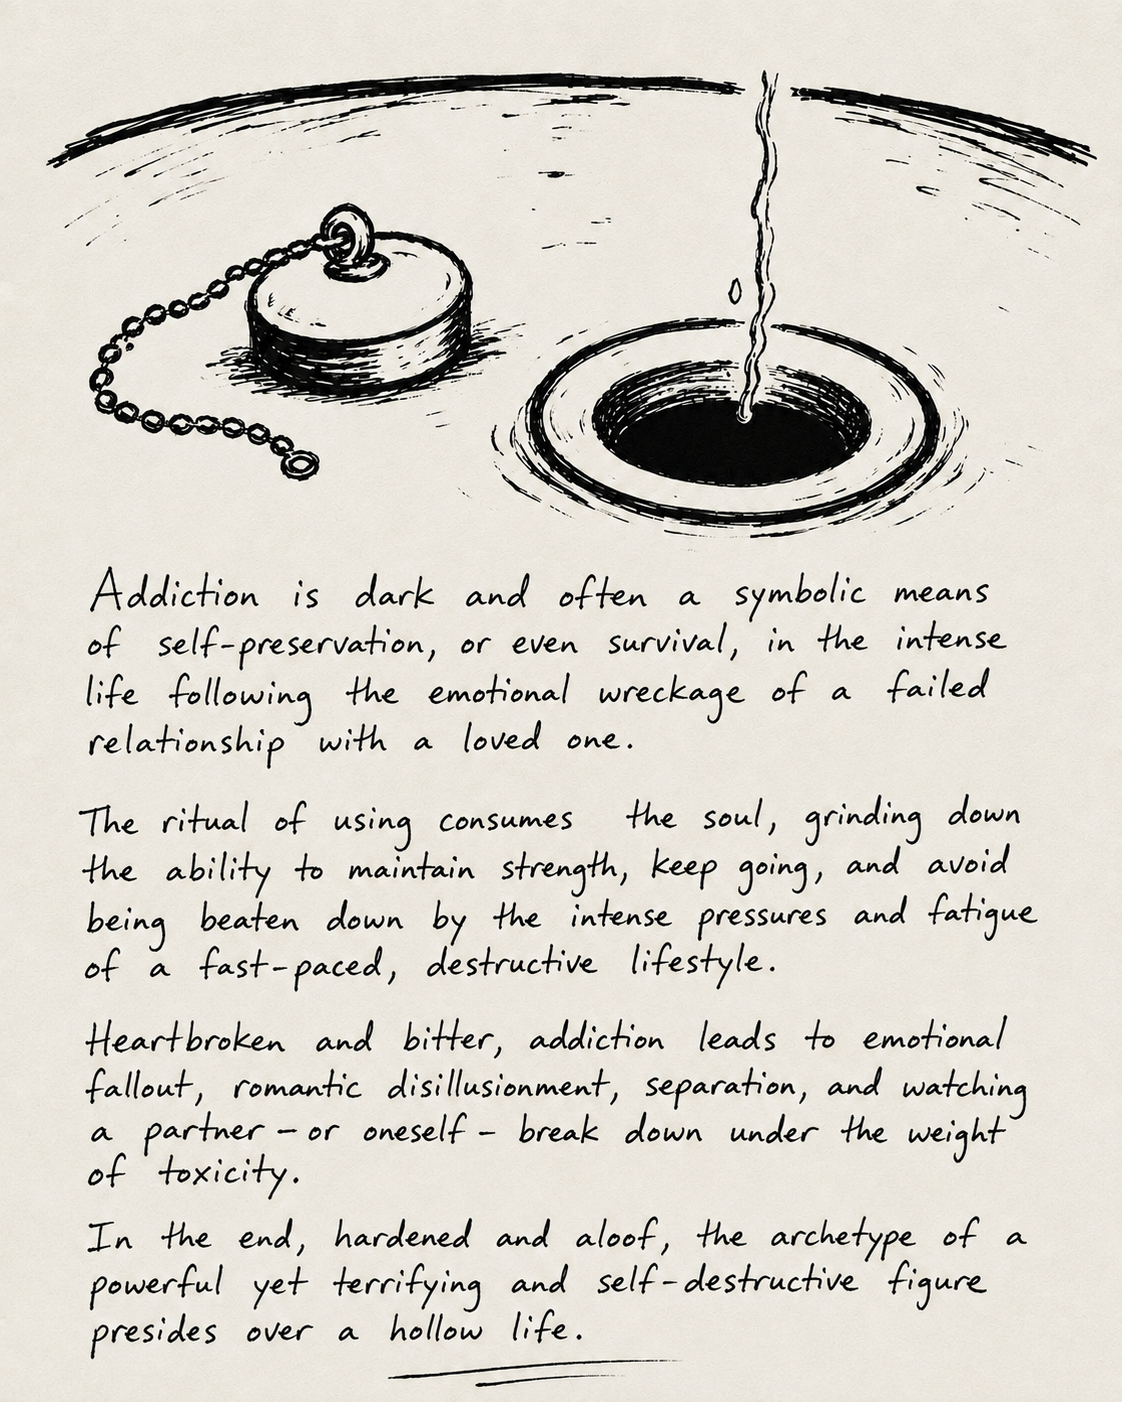 Addiction is dark and often a symbolic means
of self-preservation, or even survival, in the intense
life following the emotional wreckage of a failed
relationship with a loved one.
The ritual of using consumes the soul, grinding down
the ability to maintain strength, keep going, and avoid
being beaten down by the intense pressures and fatigue
of a fast-paced, destructive lifestyle.
Heartbroken and bitter, addiction leads to emotional
fallout, romantic disillusionment, separation, and watching
a partner – or oneself – break down under the weight
of toxicity.
In the end, hardened and aloof, the archetype of a
powerful yet terrifying and self-destructive figure
presides over a hollow life.